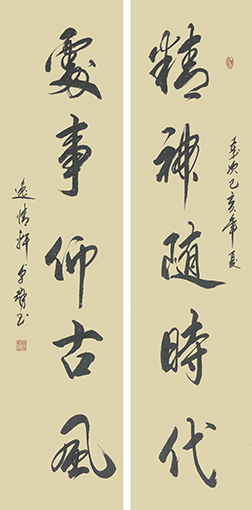 精神随時代
歲次己亥年夏
處事仰古風
逸情軒